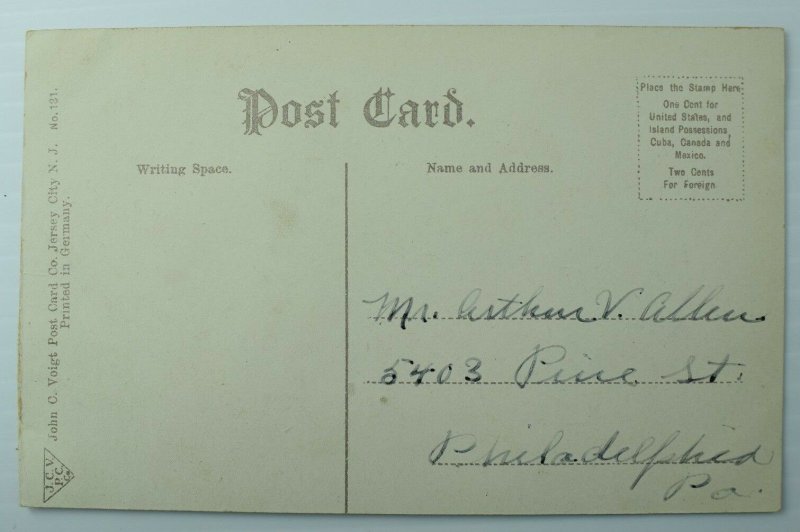 Post Card.
Writing Space.
Name and Address.
Place the Stamp Here
One Cent for
United States, and
Island Possessions,
Cuba, Canada and
Mexico.
Two Cents
For Foreign.
Mr. Arthur V. Allen
5403 Pine St.
Philadelphia
Pa.
John C. Voigt Post Card Co. Jersey City N. J. No. 121.
Printed in Germany.
J. C. V.
P. C.
Co.